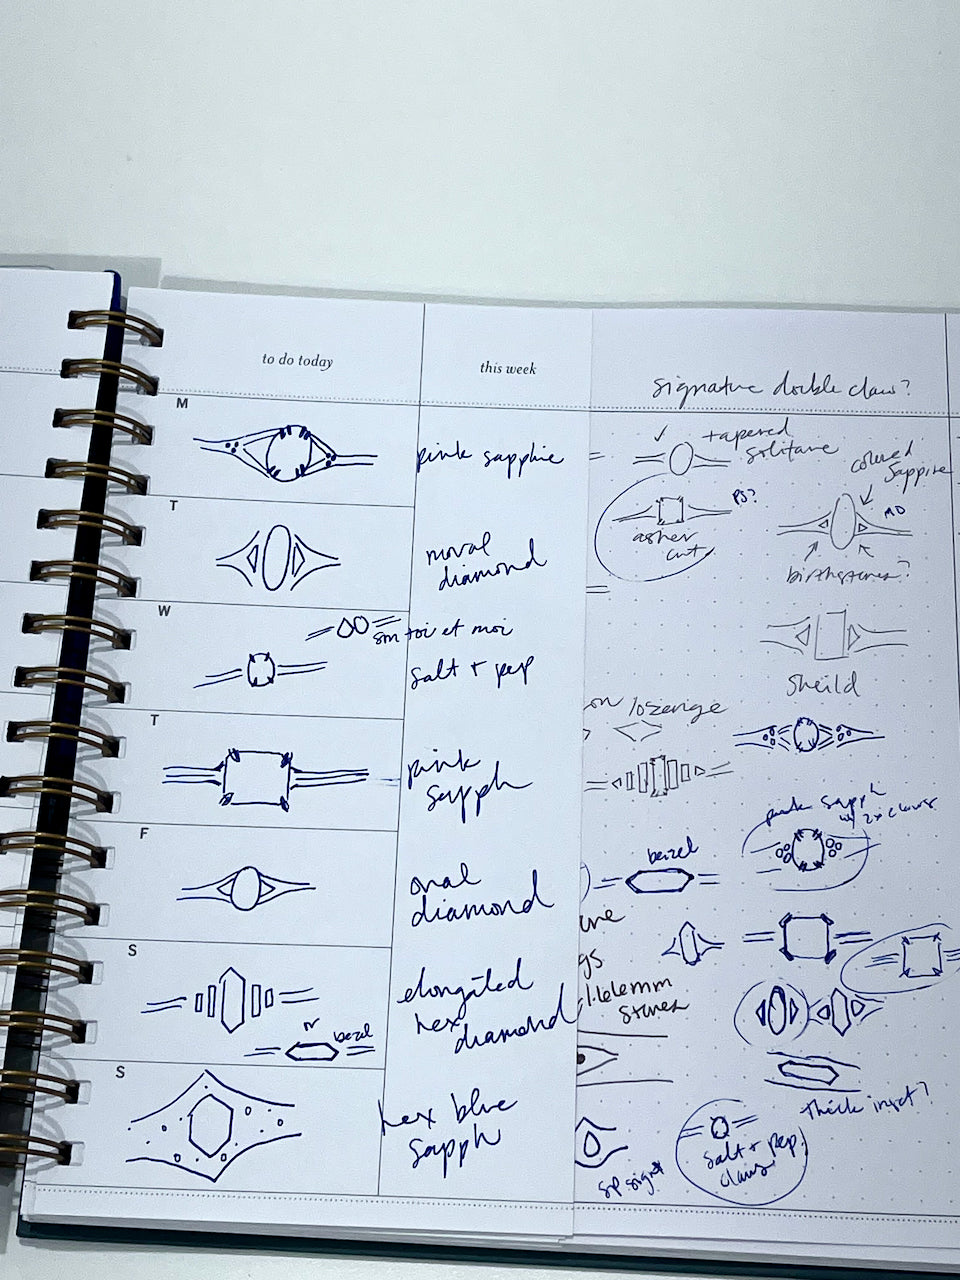 to do today
this week
M
pink sapphire
T
moval
diamond
W
sm toi et moi
salt + pep
T
pink
sapph
F
oval
diamond
S
elongated
hex
diamond
or
bezel
S
hex blue
sapph
signature double claw?
tapered
solitaire
colored
sappire
PS?
asher
cut
MD
birthstones?
sheild
on lozenge
pink sapph
w/ 2x claws
bezel
une
gs
1.6mm
stones
thick inset?
salt + pep
claws
sp signet